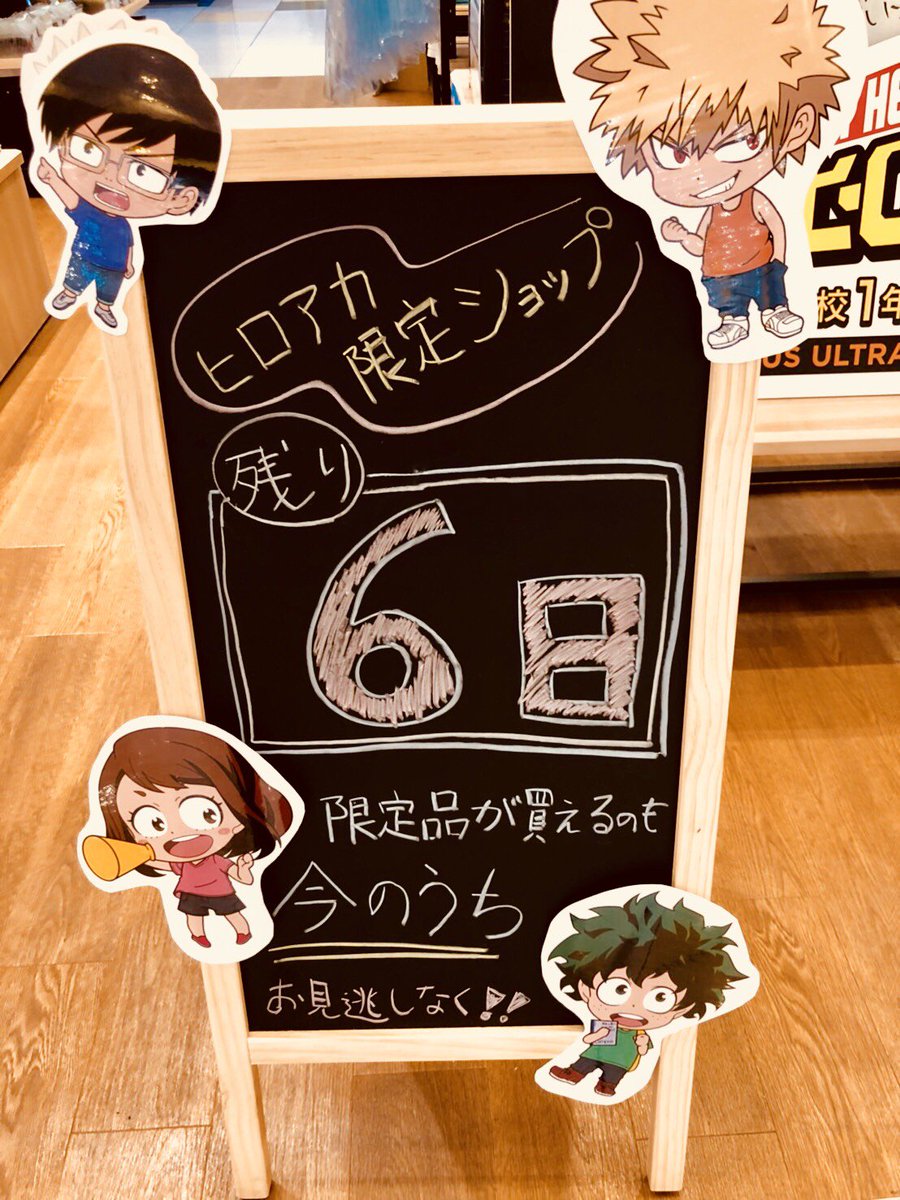 ヒロアカ
限定ショップ
残り
6日
限定品が買えるのも
今のうち
お見逃しなく!!
HE
校1年
US ULTRA